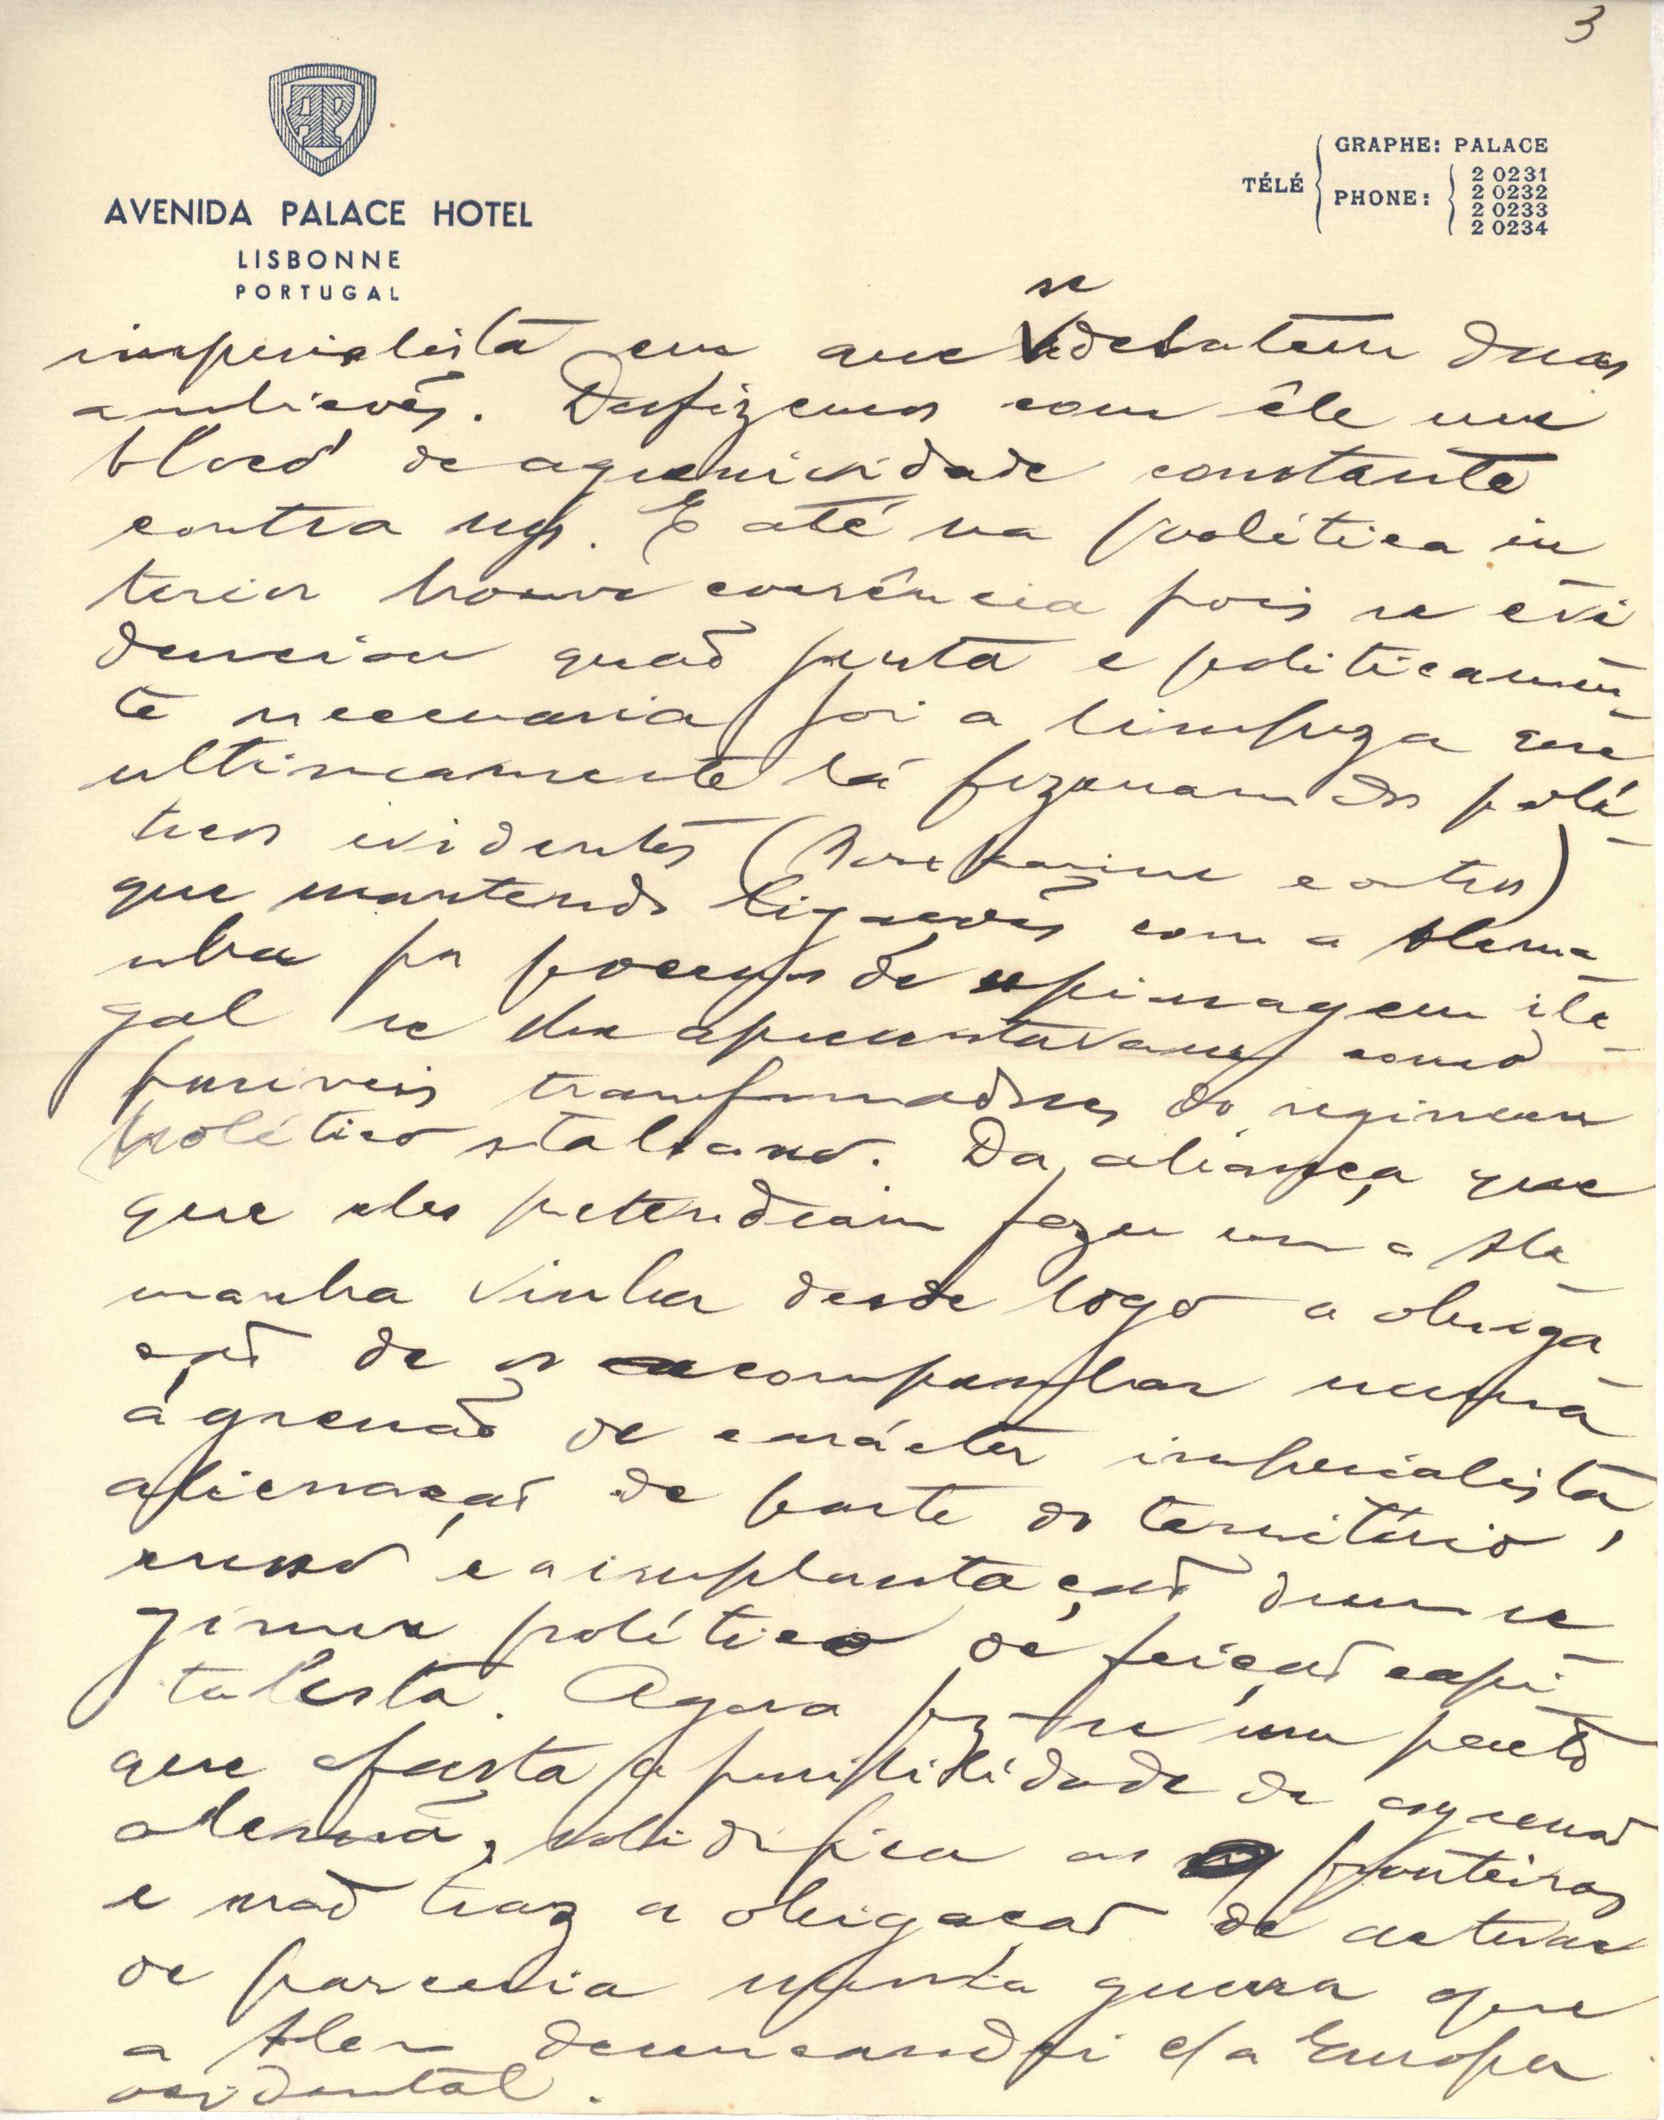 3
AP
AVENIDA PALACE HOTEL
LISBONNE
PORTUGAL
TÉLÉ
GRAPHE: PALACE
PHONE:
2 0231
2 0232
2 0233
2 0234
se
imperialista em que debatem duas
ambições. Desfizemos com êle um
bloco de agressividade constante
contra nós. E até na política in
terior houve coerência pois se evi
denciou quão justa e politicamen-
te necessaria foi a limpeza que
ultimamente lá fizeram dos polí-
ticos evidentes ( e outros)
que mantendo ligações com a Alema
nha por processos de espionagem ile-
gal se lhe apresentavam como
possiveis transformadores do regimen
político staliano. Da aliança que
que eles pretendiam fazer com a Ale-
manha vinha desde logo a obriga
ção de os acompanhar numa
agressão de carácter imperialista,
alienação de parte do território
russo e a implantação dum re
gimen político de feição capi-
talista. Agora fez-se um pacto
que afasta a possibilidade da agressão
alemã, solidifica as fronteiras
e não traz a obrigação de actuar
de parceria numa guerra que
a Alem desencandei c/a Europa
ocidental.